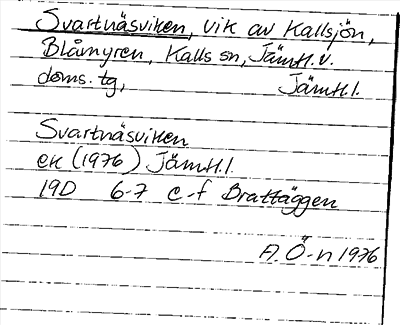 Svartnäsviken, vik av Kallsjön,
Blåmyren, Kalls sn, Jämtl.v.
doms. tg, Jämtl.l.
Svartnäsviken
ek (1976) Jämtl.l.
19D 6-7 e-f Brattäggen
A. Ö-n 1976